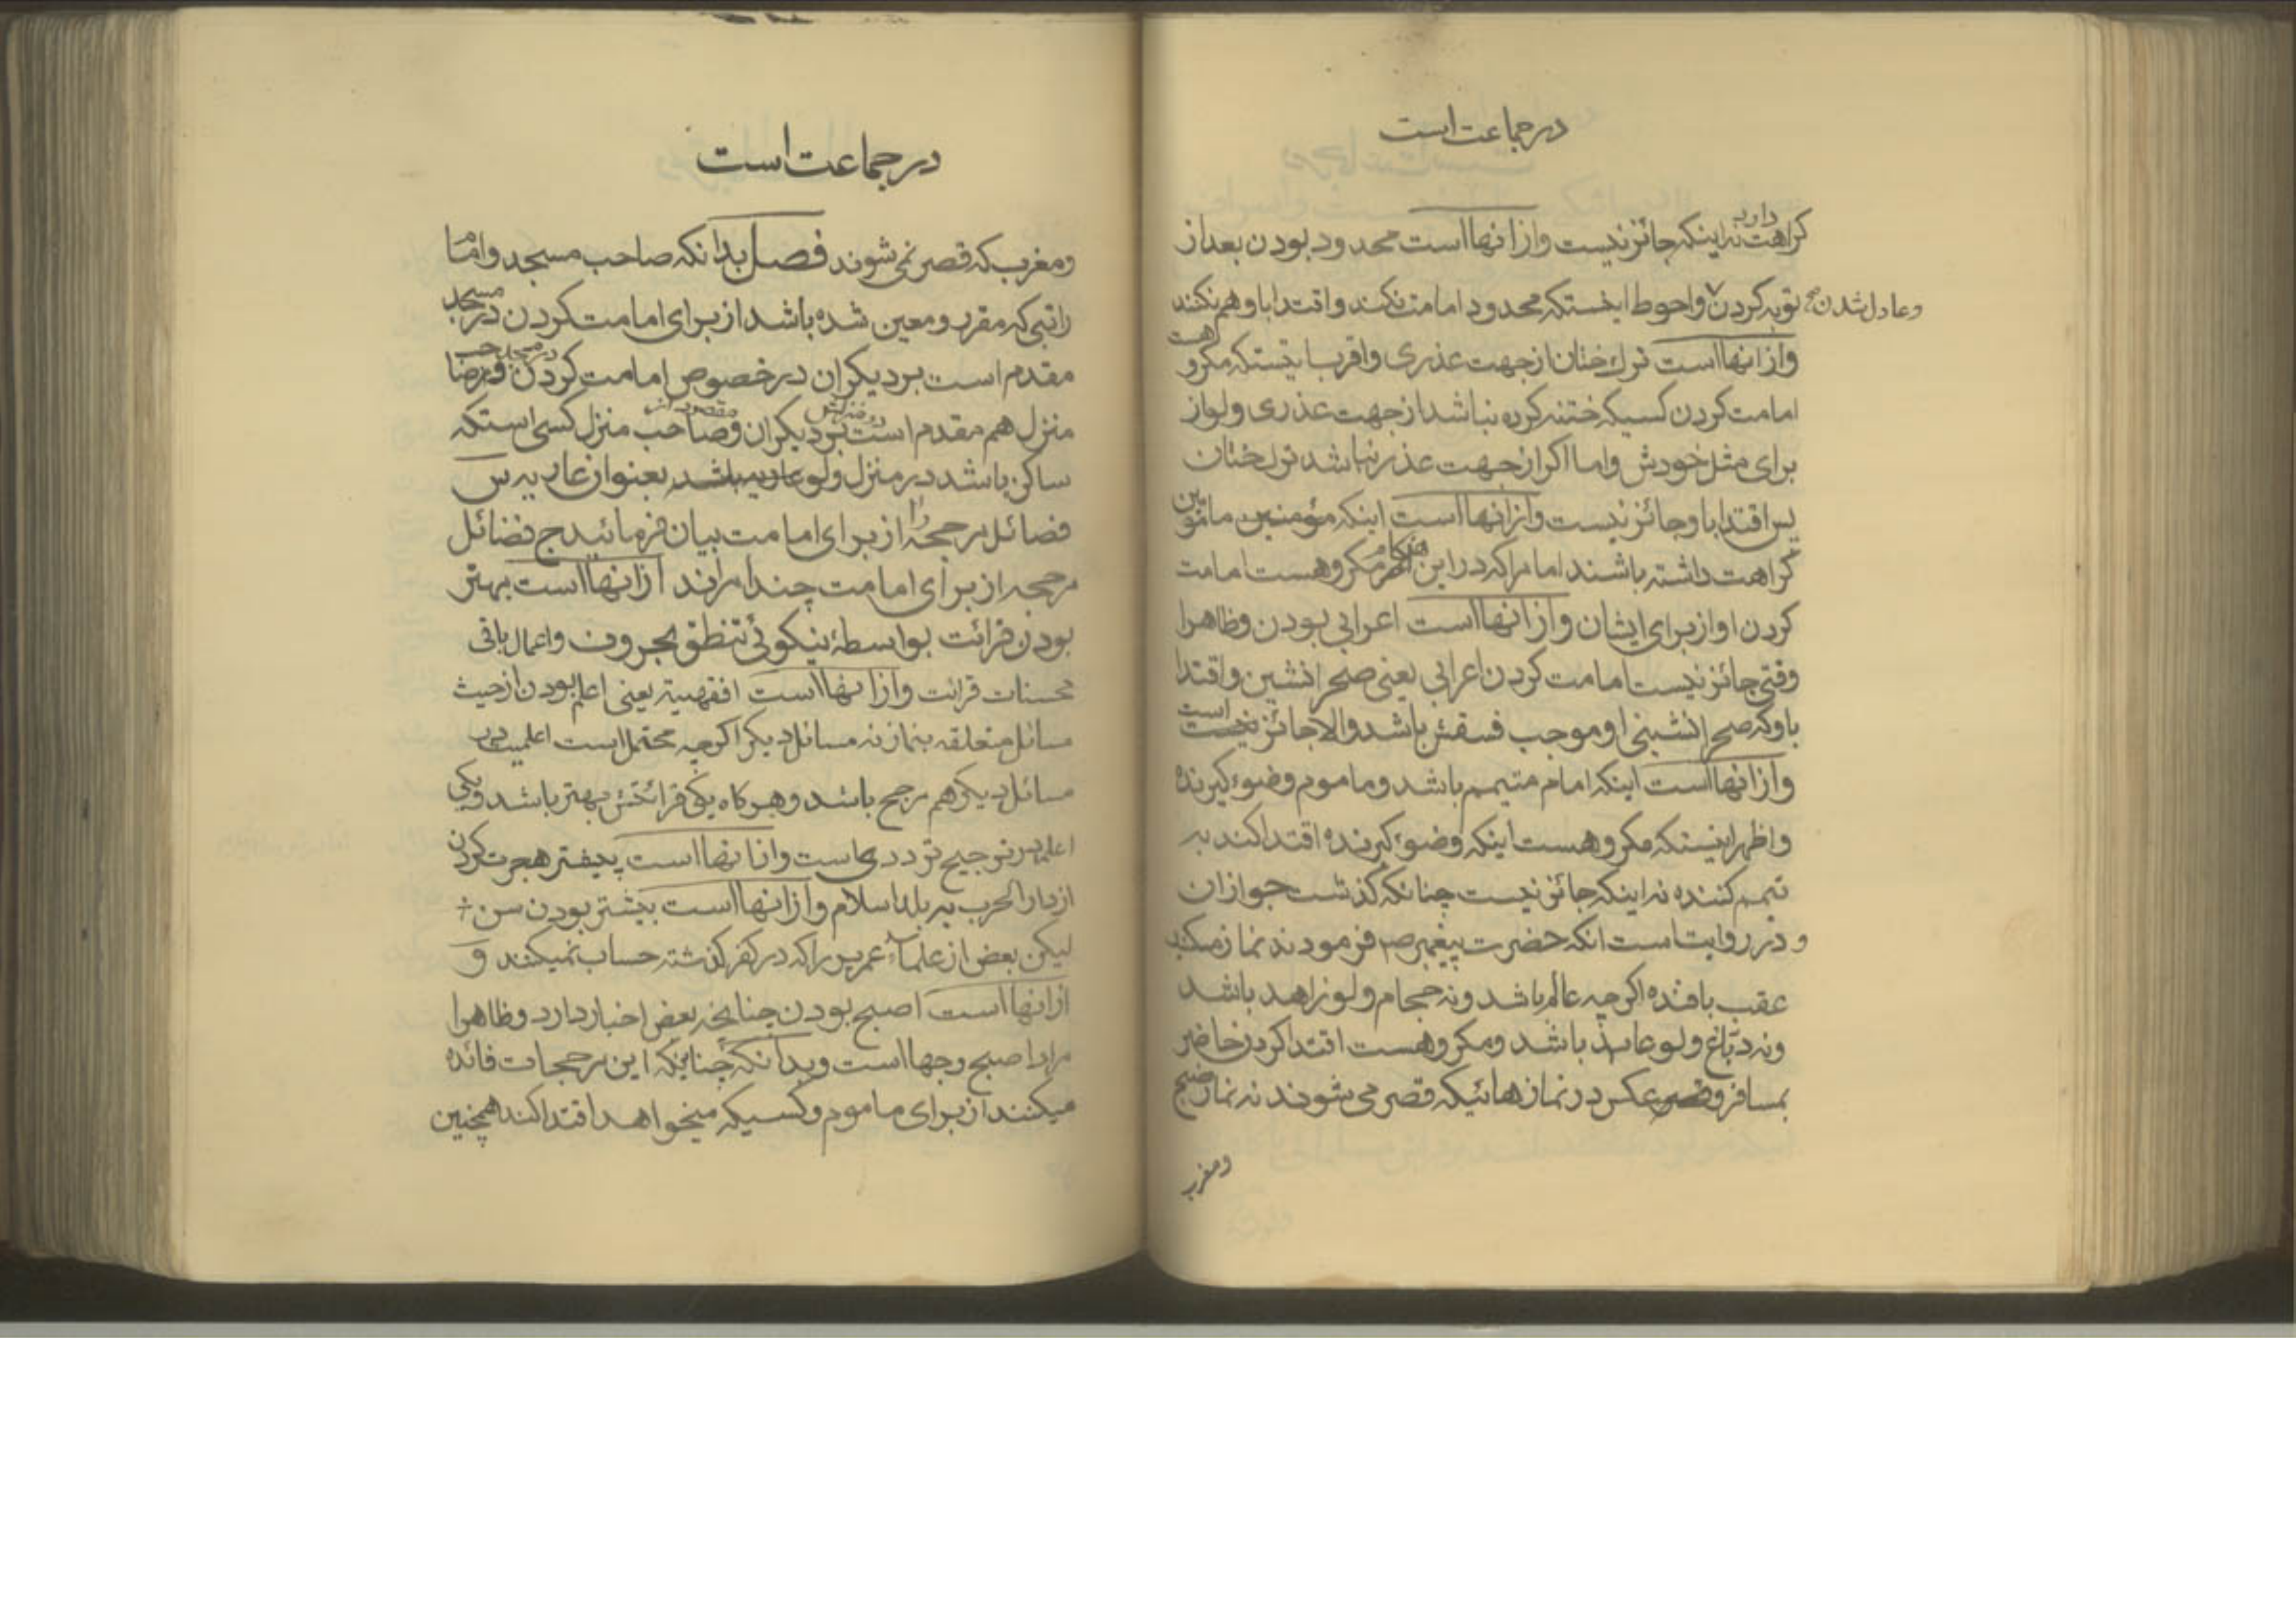 در جماعت است
کراهت دارد نه اینکه جائز نیست و از انها است محدود بودن بعد از
توبه کردن و عادل شدن صح و احوط اینستکه محدود امامت نکند و اقتدا باو هم نکنند
و از انها است ترک ختان از جهت عذری و اقرب اینستکه مکروهست
امامت کردن کسیکه ختنه کرده نباشد از جهت عذری ولو از
برای مثل خودش و اما اکر از جهت عذر نباشد ترک ختان
پس اقتدا باو جائز نیست و از انها است اینکه مؤمنین مامومین
کراهت داشته باشند امام را که در این هنکام مکروهست امامت
کردن او از برای ایشان و از انها است اعرابی بودن و ظاهرا
وقتی جائز نیست امامت کردن اعرابی یعنی صحرا نشین و اقتدا
باو که صحرا نشینی او موجب فسقش باشد والا جائز است
و از انها است اینکه امام متیمم باشد و ماموم وضوء کیرنده
و اظهر اینستکه مکروهست اینکه وضوء کیرنده اقتدا کند به
تیمم کننده نه اینکه جائز نیست چنانکه کذشت جواز ان
و در روایت است انکه حضرت پیغمبر ص فرمودند نماز مکنید
عقب بافنده اکرچه عالم باشد و نه حجام ولو زاهد باشد
و نه دباغ ولو عابد باشد و مکروهست اقتدا کردن حاضر
بمسافر و عکس در نماز هائیکه قصر می شوند نه نماز صبح
و مغرب
در جماعت است
و مغرب که قصر نمی شوند فصل بدانکه صاحب مسجد و امام
راتبی که مقرر و معین شده باشد از برای امامت کردن در مسجد
مقدم است بر دیکران در خصوص امامت کردن در مسجد و صاحب
منزل هم مقدم است در منزلش بر دیکران و مقصود از صاحب منزل کسی استکه
ساکن باشد در منزل ولو بعنوان عاریه س
فضائل مرجحه را از برای امامت بیان فرمائید ج فضائل
مرجحه از برای امامت چند امراند از انها است بهتر
بودن قرائت بواسطهٔ نیکوئی تنطق بحروف و اعمال باقی
محسنات قرائت و از انها است افقهیة یعنی اعلم بودن از حیث
مسائل متعلقه بنماز نه مسائل دیکر اکرچه محتمل است اعلمیت در
مسائل دیکر هم مرجح باشد و هر کاه یکی قرائتش بهتر باشد و یکی
اعلم در ترجیح ترددی است و از انها است پیشتر هجرت کردن
از دار الحرب به بلد اسلام و از انها است بیشتر بودن سن
لیکن بعض از علماء عمریرا که در کفر کذشته حساب نمیکنند و
از انها است اصبح بودن چنانچه بعض اخبار دارد و ظاهرا
مراد اصبح وجها است و بدانکه چنانکه این مرجحات فائده
میکنند از برای ماموم و کسیکه میخواهد اقتدا کند همچنین